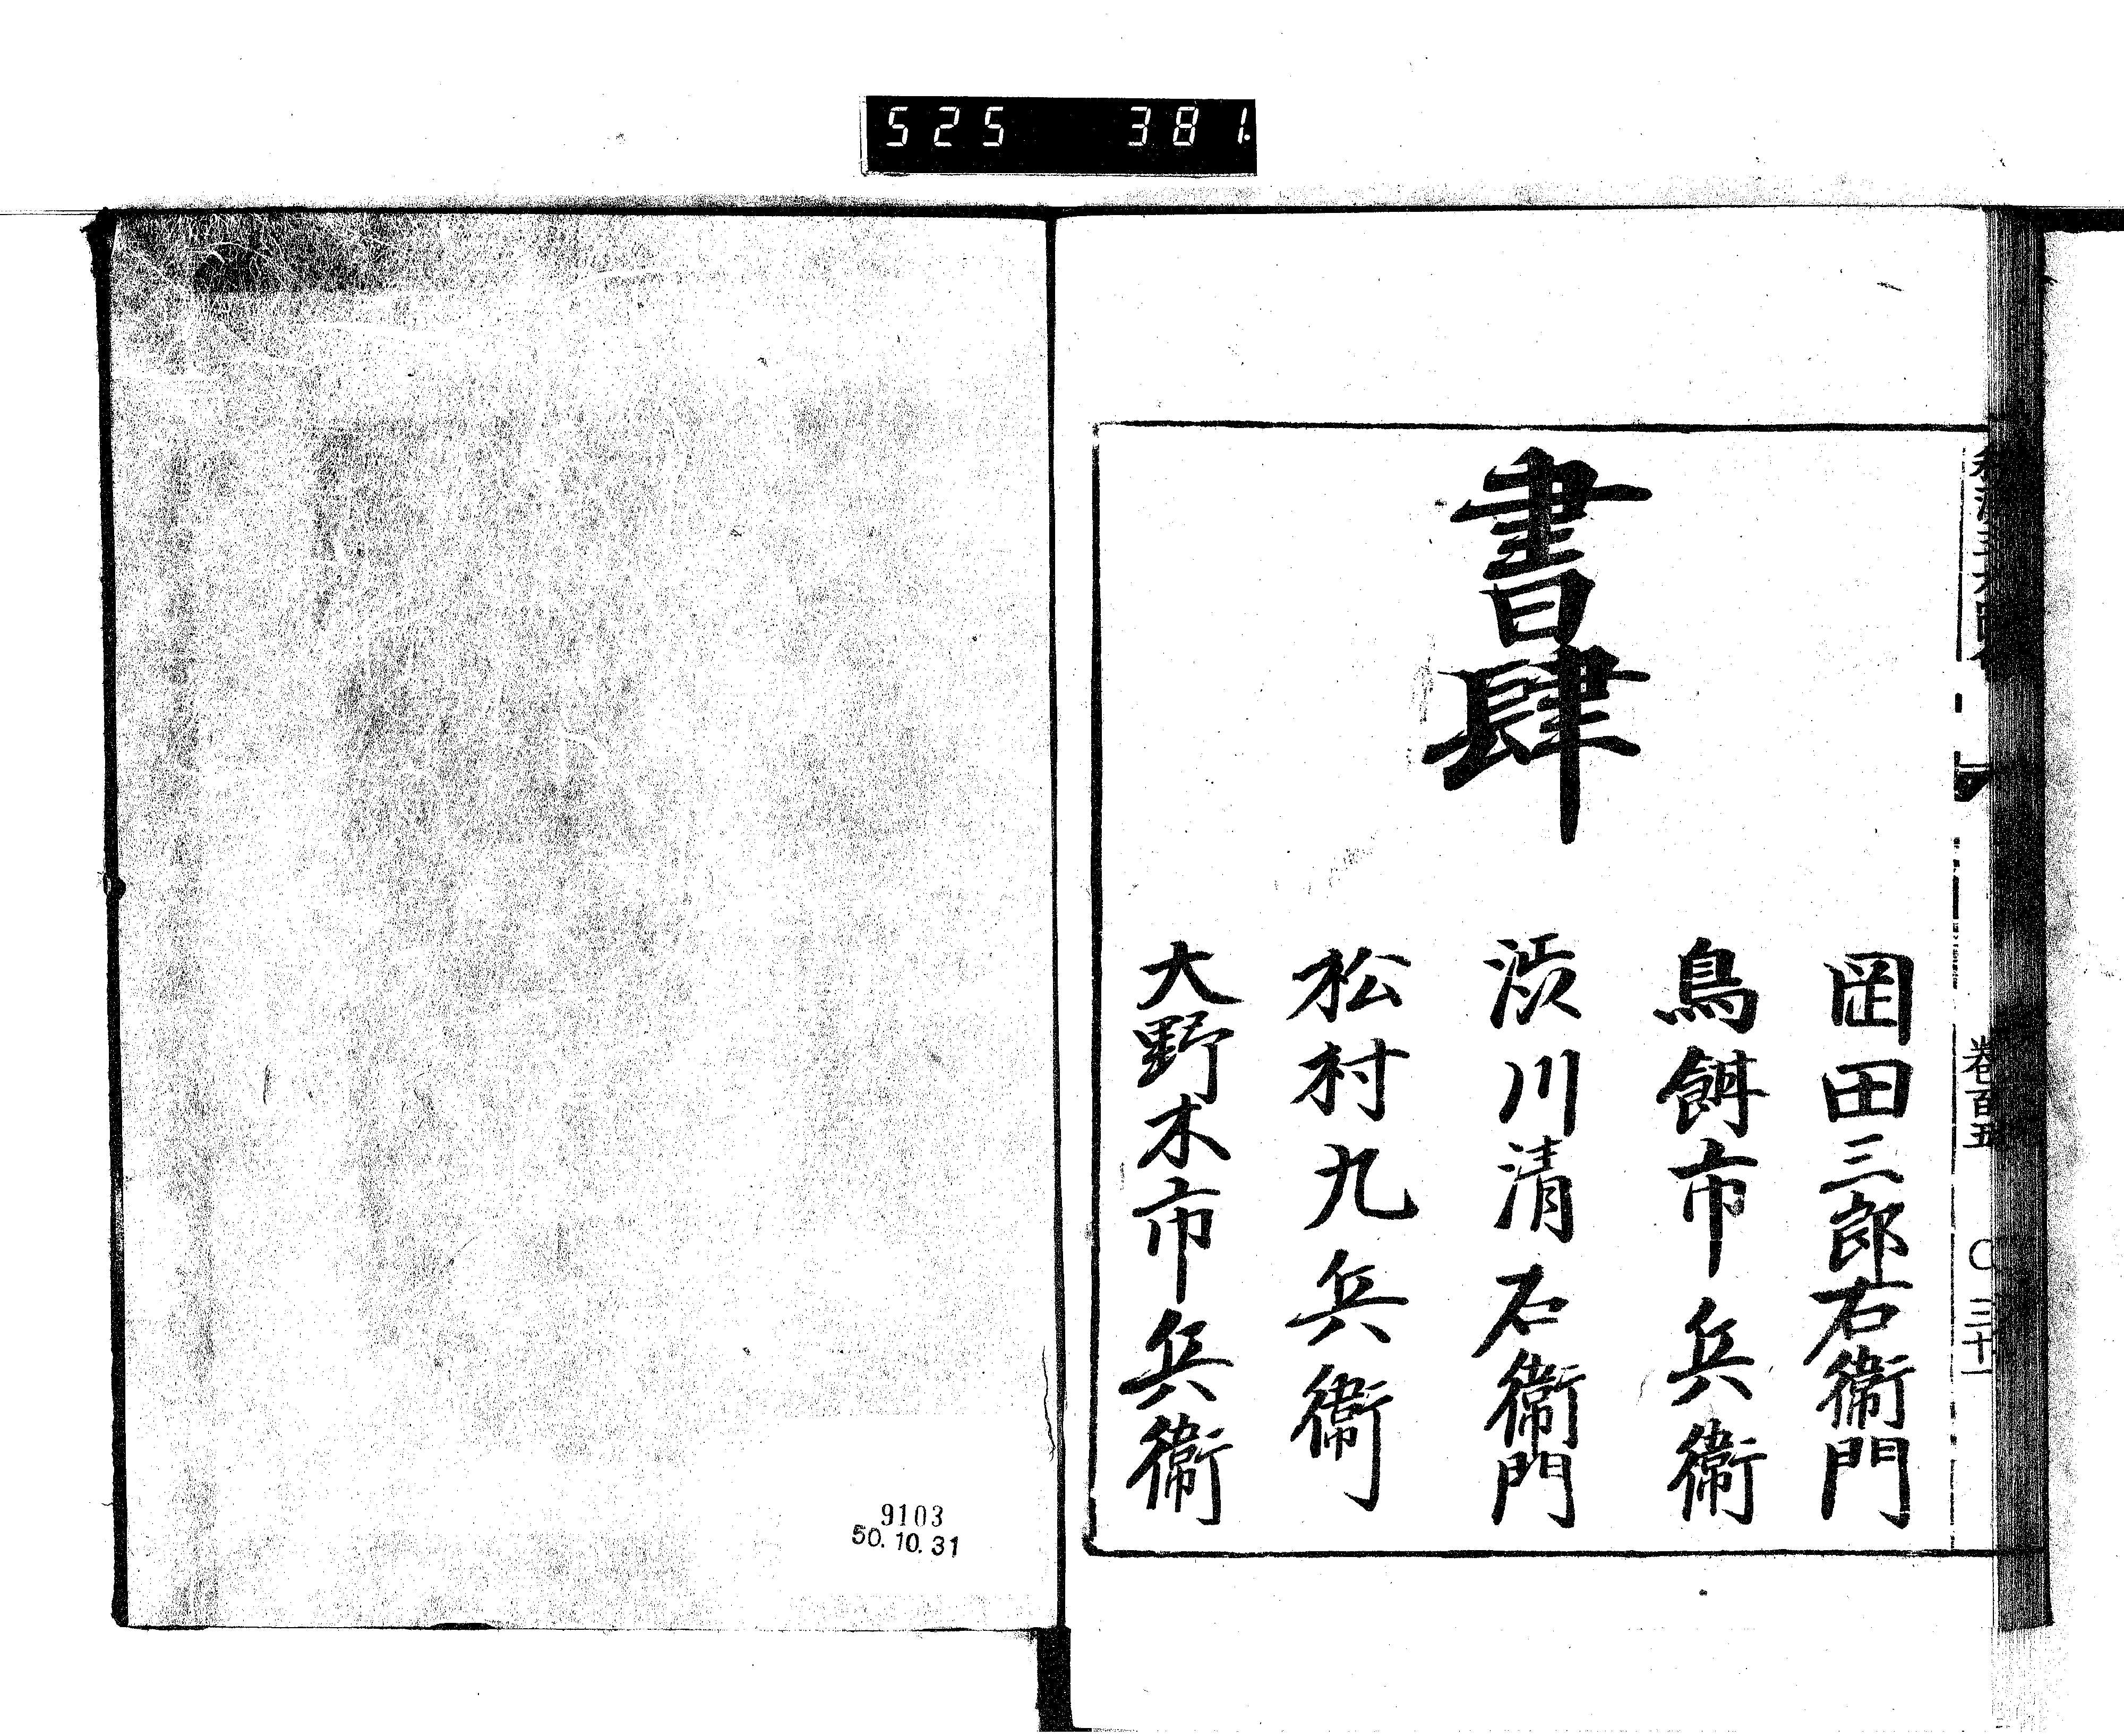 525 381.
書肆
岡田三郎右衛門
鳥飼市兵衛
渋川清右衛門
松村九兵衛
大野木市兵衛
卷百五 〇 三十一
9103
50.10.31